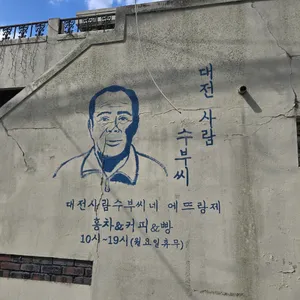 대전 사람
수부씨
대전사람수부씨네 에뜨랑제
홍차&커피&빵
10시-19시(월요일휴무)